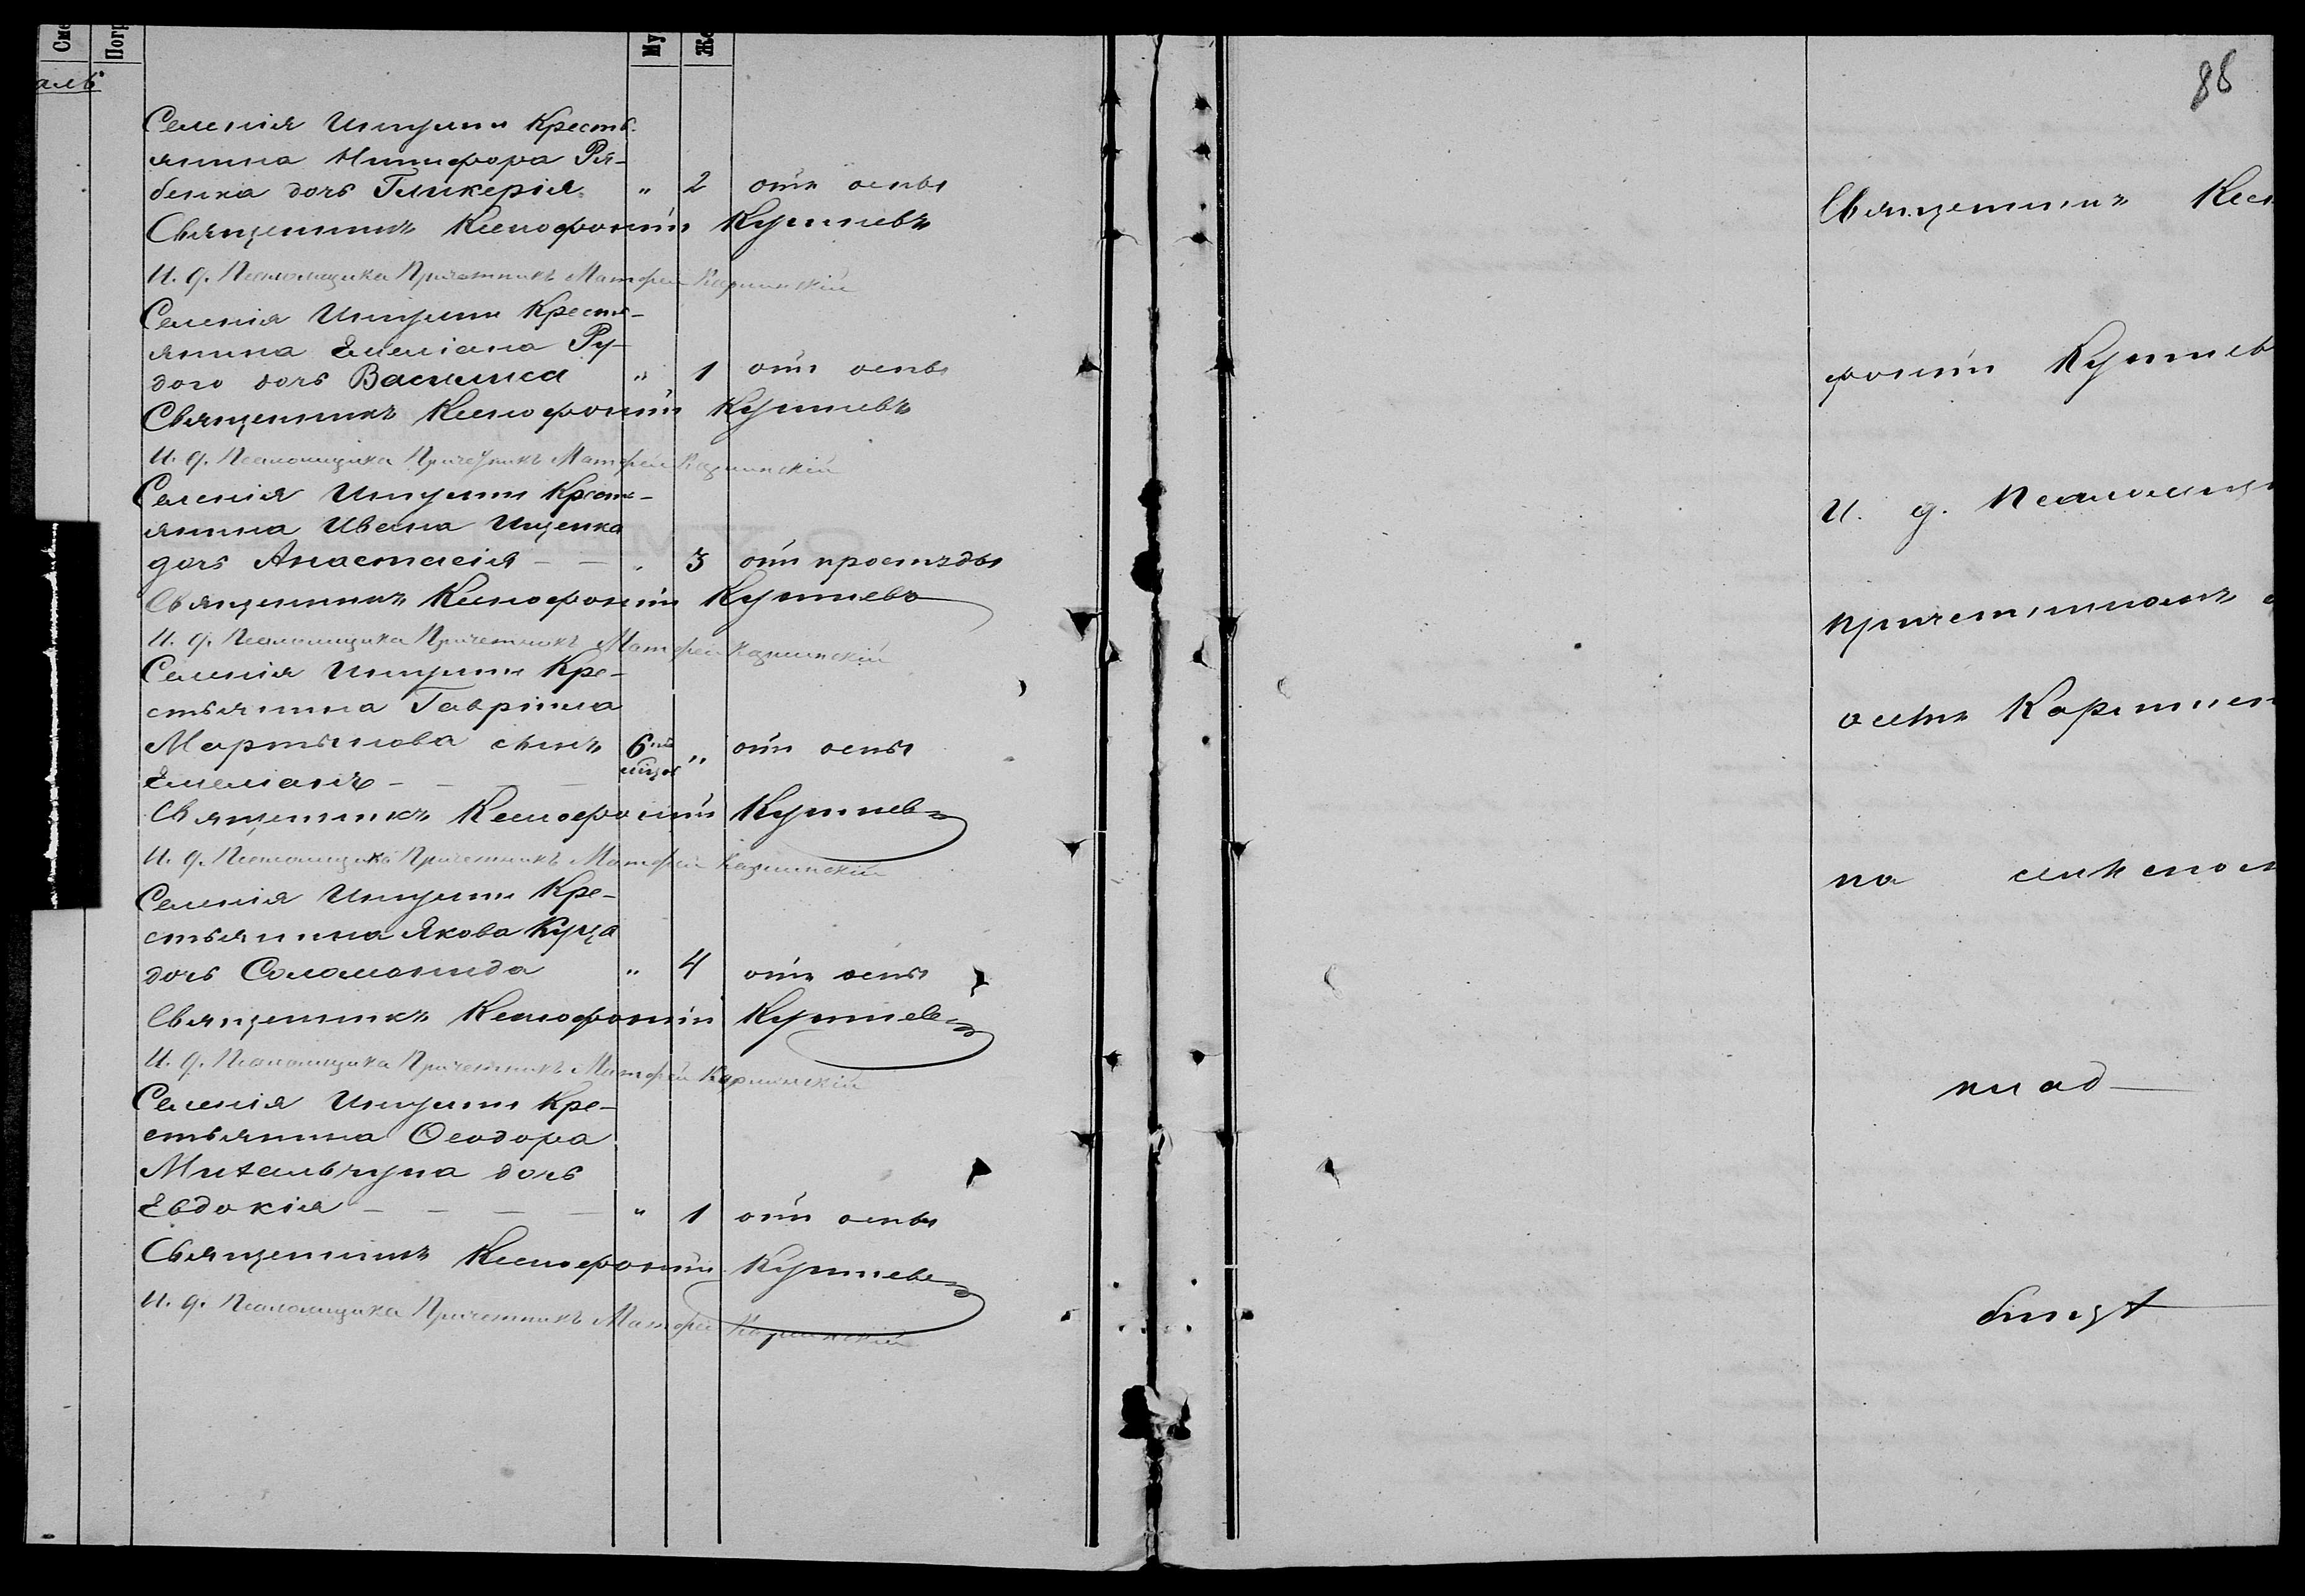 Сме
Погр
Му
Же
аль
88
Селенія Интулы Кресть-
янина Никифора Ря-
бенка дочь Гликерія " 2 отъ оспы
Священникъ Ксенофонтъ Купчевъ
И. д. Псаломщика Причетникъ Матфей Карпинскій
Селенія Интулы Кресть-
янина Емеліана Ру-
дого дочь Василиса " 1 отъ оспы
Священникъ Ксенофонтъ Купчевъ
И. д. Псаломщика Причетникъ Матфей Карпинскій
Селенія Интулы Кресть-
янина Ивана Ищенка
дочь Анастасія — — " 3 отъ простуды
Священникъ Ксенофонтъ Купчевъ
И. д. Псаломщика Причетникъ Матфей Карпинскій
Селенія Интулы Кре-
стьянина Гавріила
Мартынова сынъ 6ть " отъ оспы
Емеліанъ — — — мѣсяц
Священникъ Ксенофонтъ Купчевъ
И. д. Псаломщика Причетникъ Матфей Карпинскій
Селенія Интулы Кре-
стьянина Якова Куца
дочь Соломонида " 4 отъ оспы
Священникъ Ксенофонтъ Купчевъ
И. д. Псаломщика Причетникъ Матфей Карпинскій
Селенія Интулы Кре-
стьянина Ѳеодора
Михальчука дочь
Евдокія — — — — " 1 отъ оспы
Священникъ Ксенофонтъ Купчевъ
И. д. Псаломщика Причетникъ Матфей Карпинскій
Священникъ Ксе
фонтъ Купчев
И. д. Псаломщ
причетникъ
на